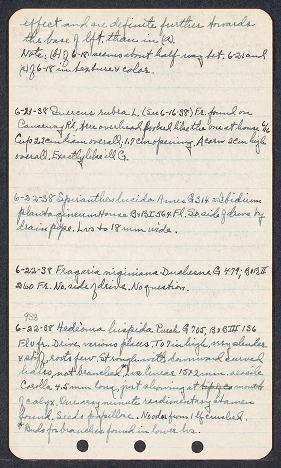 effect and are definite further towards
the base of lft. than in (a).
Note: (b) of 6-18 seems about half way bet. 6-21 and
(a) of 6-18 in texture & color.
6-21-38 Quercus rubra L. (See 6-16-38) Fr. found on
Causeway Rd. tree overhead looked like the one at house
Cup 2.2 cm diam overall; 1.7 cm opening. Acorn 2 cm high
overall. Exactly like ill G.
6-22-38 Spiranthes lucida Ames G 314 = Ibidium
plantagineum House B&B I 564 Fl. So. side of drive by
drain pipe. Lvs to 18 mm wide.
6-22-38 Fragaria virginiana Duchesne G 479; B&B II
260 Fr. No. side of drive. No question.
983
6-22-38 Hedeoma hispida Pursh G 705, B&B III 136
Fl & fr. Drive, various places. To 7 in high, very slender
roots few. Strong with downward curved
hairs, not branched. Lvs linear 15 x 2 mm, sessile
Corolla 4.5 mm long, just showing at mouth
of calyx. One very minute rudimentary stamen
found. Seeds papillose. No odor from lf crushed.
Buds for branches found in lower lvs.